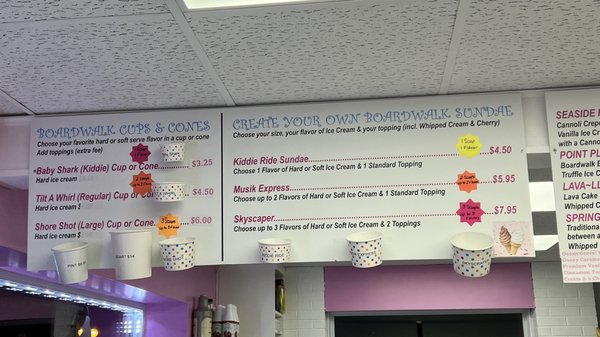 BOARDWALK CUPS & CONES
Choose your favorite hard or soft serve flavor in a cup or cone
Add toppings (extra fee)
•Baby Shark (Kiddie) Cup or Cone $3.25
Hard ice cream
Tilt A Whirl (Regular) Cup or Cone $4.50
Hard ice cream
Shore Shot (Large) Cup or Cone $6.00
Hard ice cream
CREATE YOUR OWN BOARDWALK SUNDAE
Choose your size, your flavor of Ice Cream & your topping (incl. Whipped Cream & Cherry)
Kiddie Ride Sundae $4.50
Choose 1 Flavor of Hard or Soft Ice Cream & 1 Standard Topping
Musik Express $5.95
Choose up to 2 Flavors of Hard or Soft Ice Cream & 1 Standard Topping
Skyscaper $7.95
Choose up to 3 Flavors of Hard or Soft Ice Cream & 2 Toppings
SEASIDE
Cannoli Crepe
Vanilla Ice
with a Can
POINT
Boardwalk
Truffle Ice C
LAVA-
Lava Cake
Whipped C
SPRING
Traditional
between
& Whipped